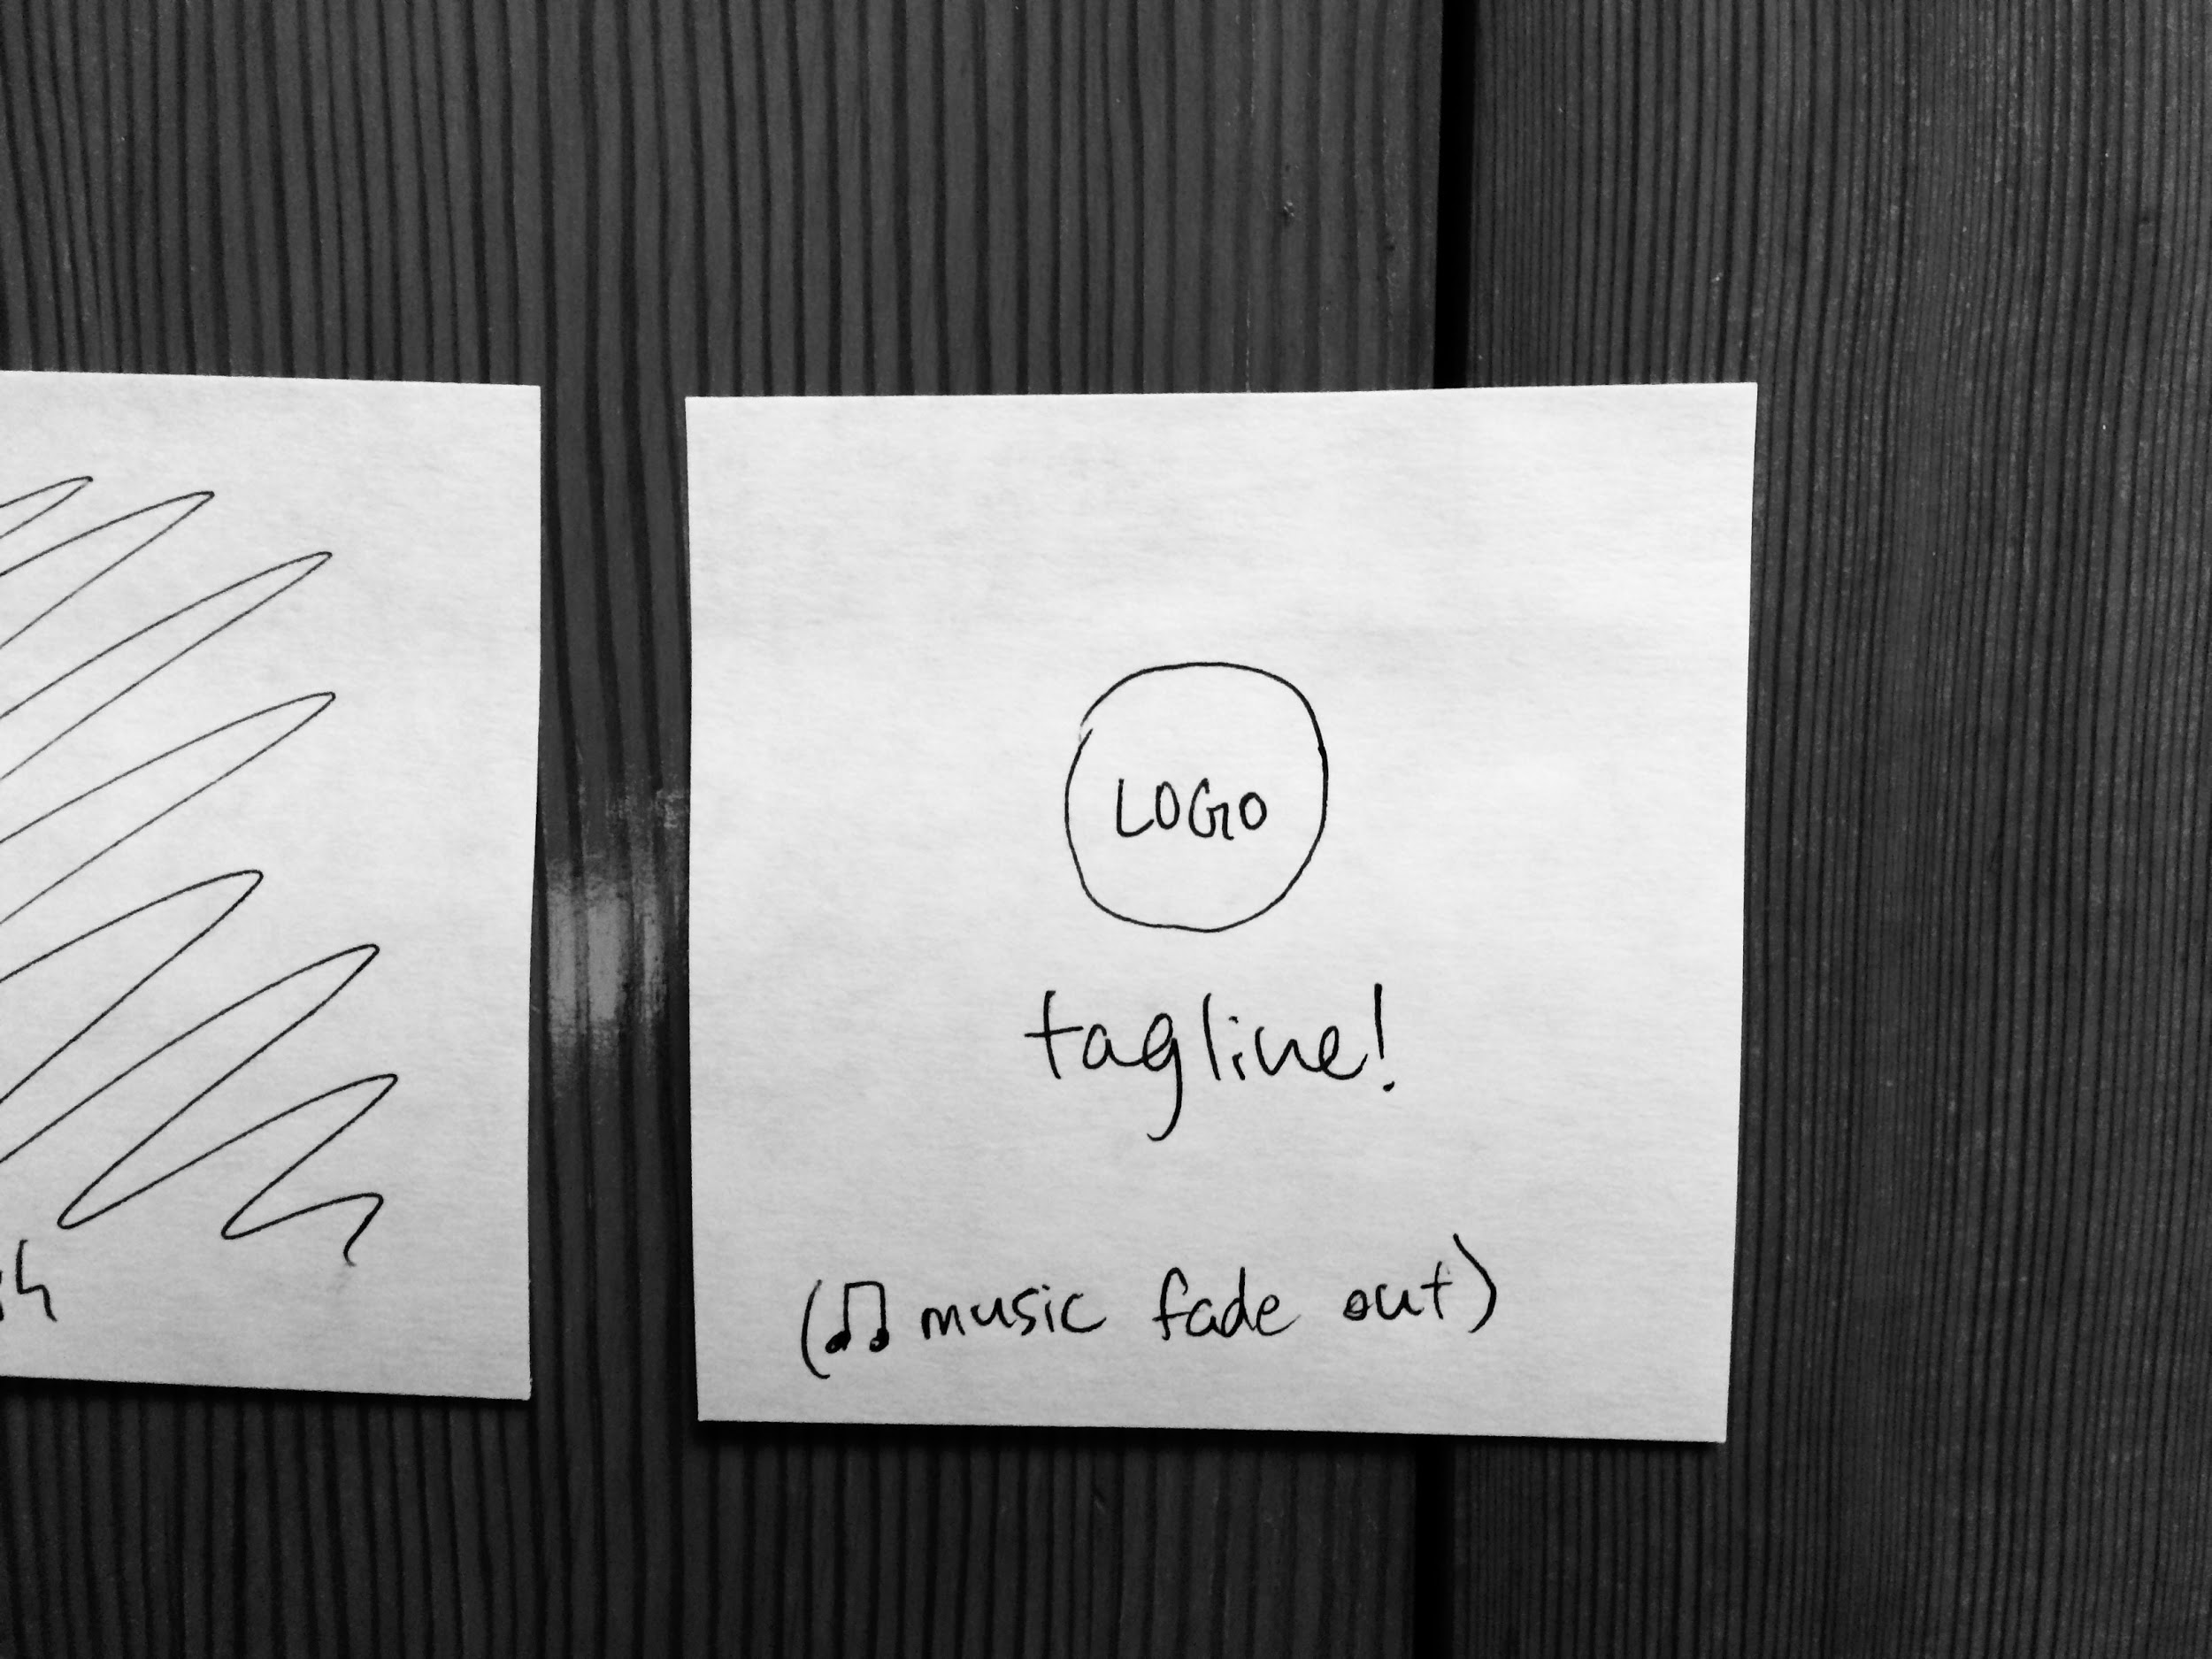 LOGO
tagline!
(♫ music fade out)